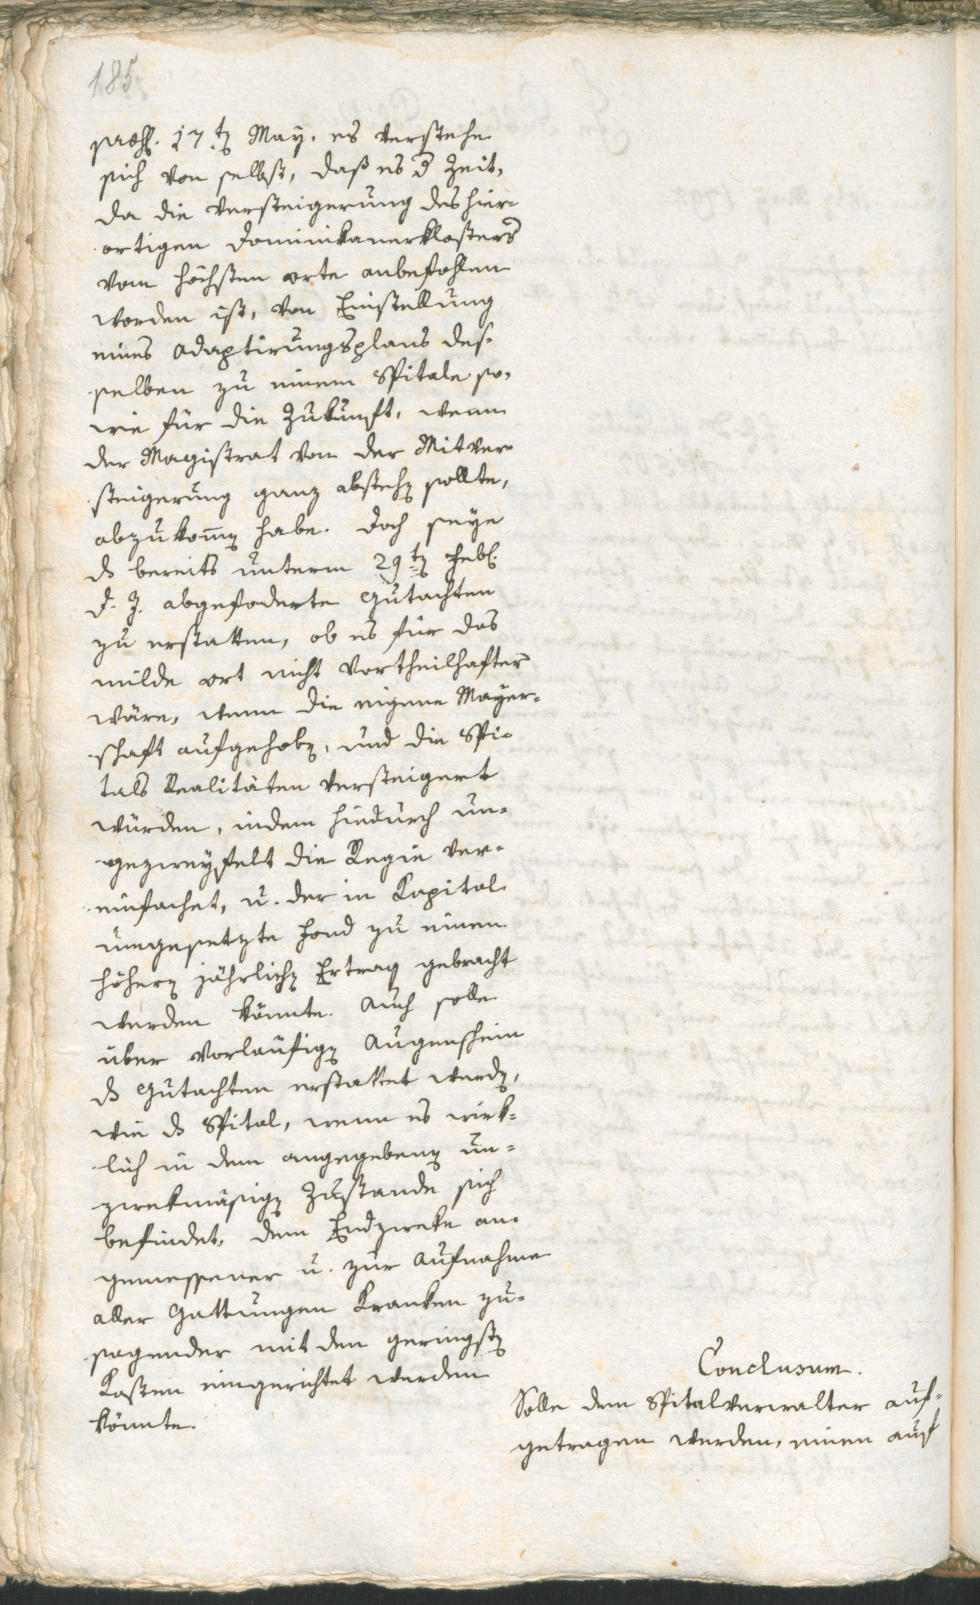 185
17.t May. es verstehe
sich von selbst, daß es d Zeit,
da die Versteigerung des hier-
ortigen Dominikanerklosters
vom höchsten orte anbefohlen
worden ist, von Einstellung
eines Adaptirungsplans des-
selben zu einem Spitale so-
wie für die Zukunft, wenn
der Magistrat von der Mitver-
steigerung ganz abstehen sollte,
abzukomen habe. Doch seye
ds bereits unterm 29ten Febl.
d. J. abgefoderte Gutachten
zu erstatten, ob es für das
milde ort nicht Vortheilhafter
wäre, wenn die eigene Mayer-
schaft aufgehoben, und die Spi-
tals Realitäten versteigert
würden, indem hiedurch un-
gezweyfelt die Regie ver-
einfachet, u. der in Kapital
umgesetzte Fond zu einem
höhern jährlichen Ertrag gebracht
werden könnte. Auch solle
über vorläufigen Augenschein
ds Gutachten erstattet werden,
wie ds Spital, wenn es wirk-
lich in dem angegebenen un-
zwekmäsigen Zustande sich
befindet, dem Endzweke an-
gemessener u. zur Aufnahme
aller Gattungen Kranken zu-
sagender mit den geringsten
Kosten eingerichtet werden
könnte.
Conclusum.
Solle dem Spitalverwalter auf-
getragen werden, einen auf